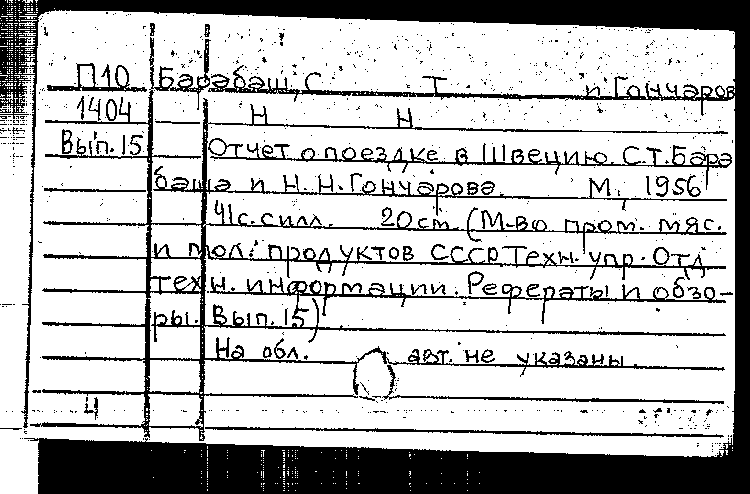 П10 Барабаш, С Т и Гончаров
1404 Н Н
Вып.15 Отчет о поездке в Швецию С.Т.Бара
баша и Н.Н.Гончарова. М., 1956
41с.силл. 20см (М-во пром. мяс.
и мол. продуктов СССР Техн. упр. Отд
техн. информации. Рефераты и обзо-
ры. Вып.15)
На обл. авт. не указаны
4